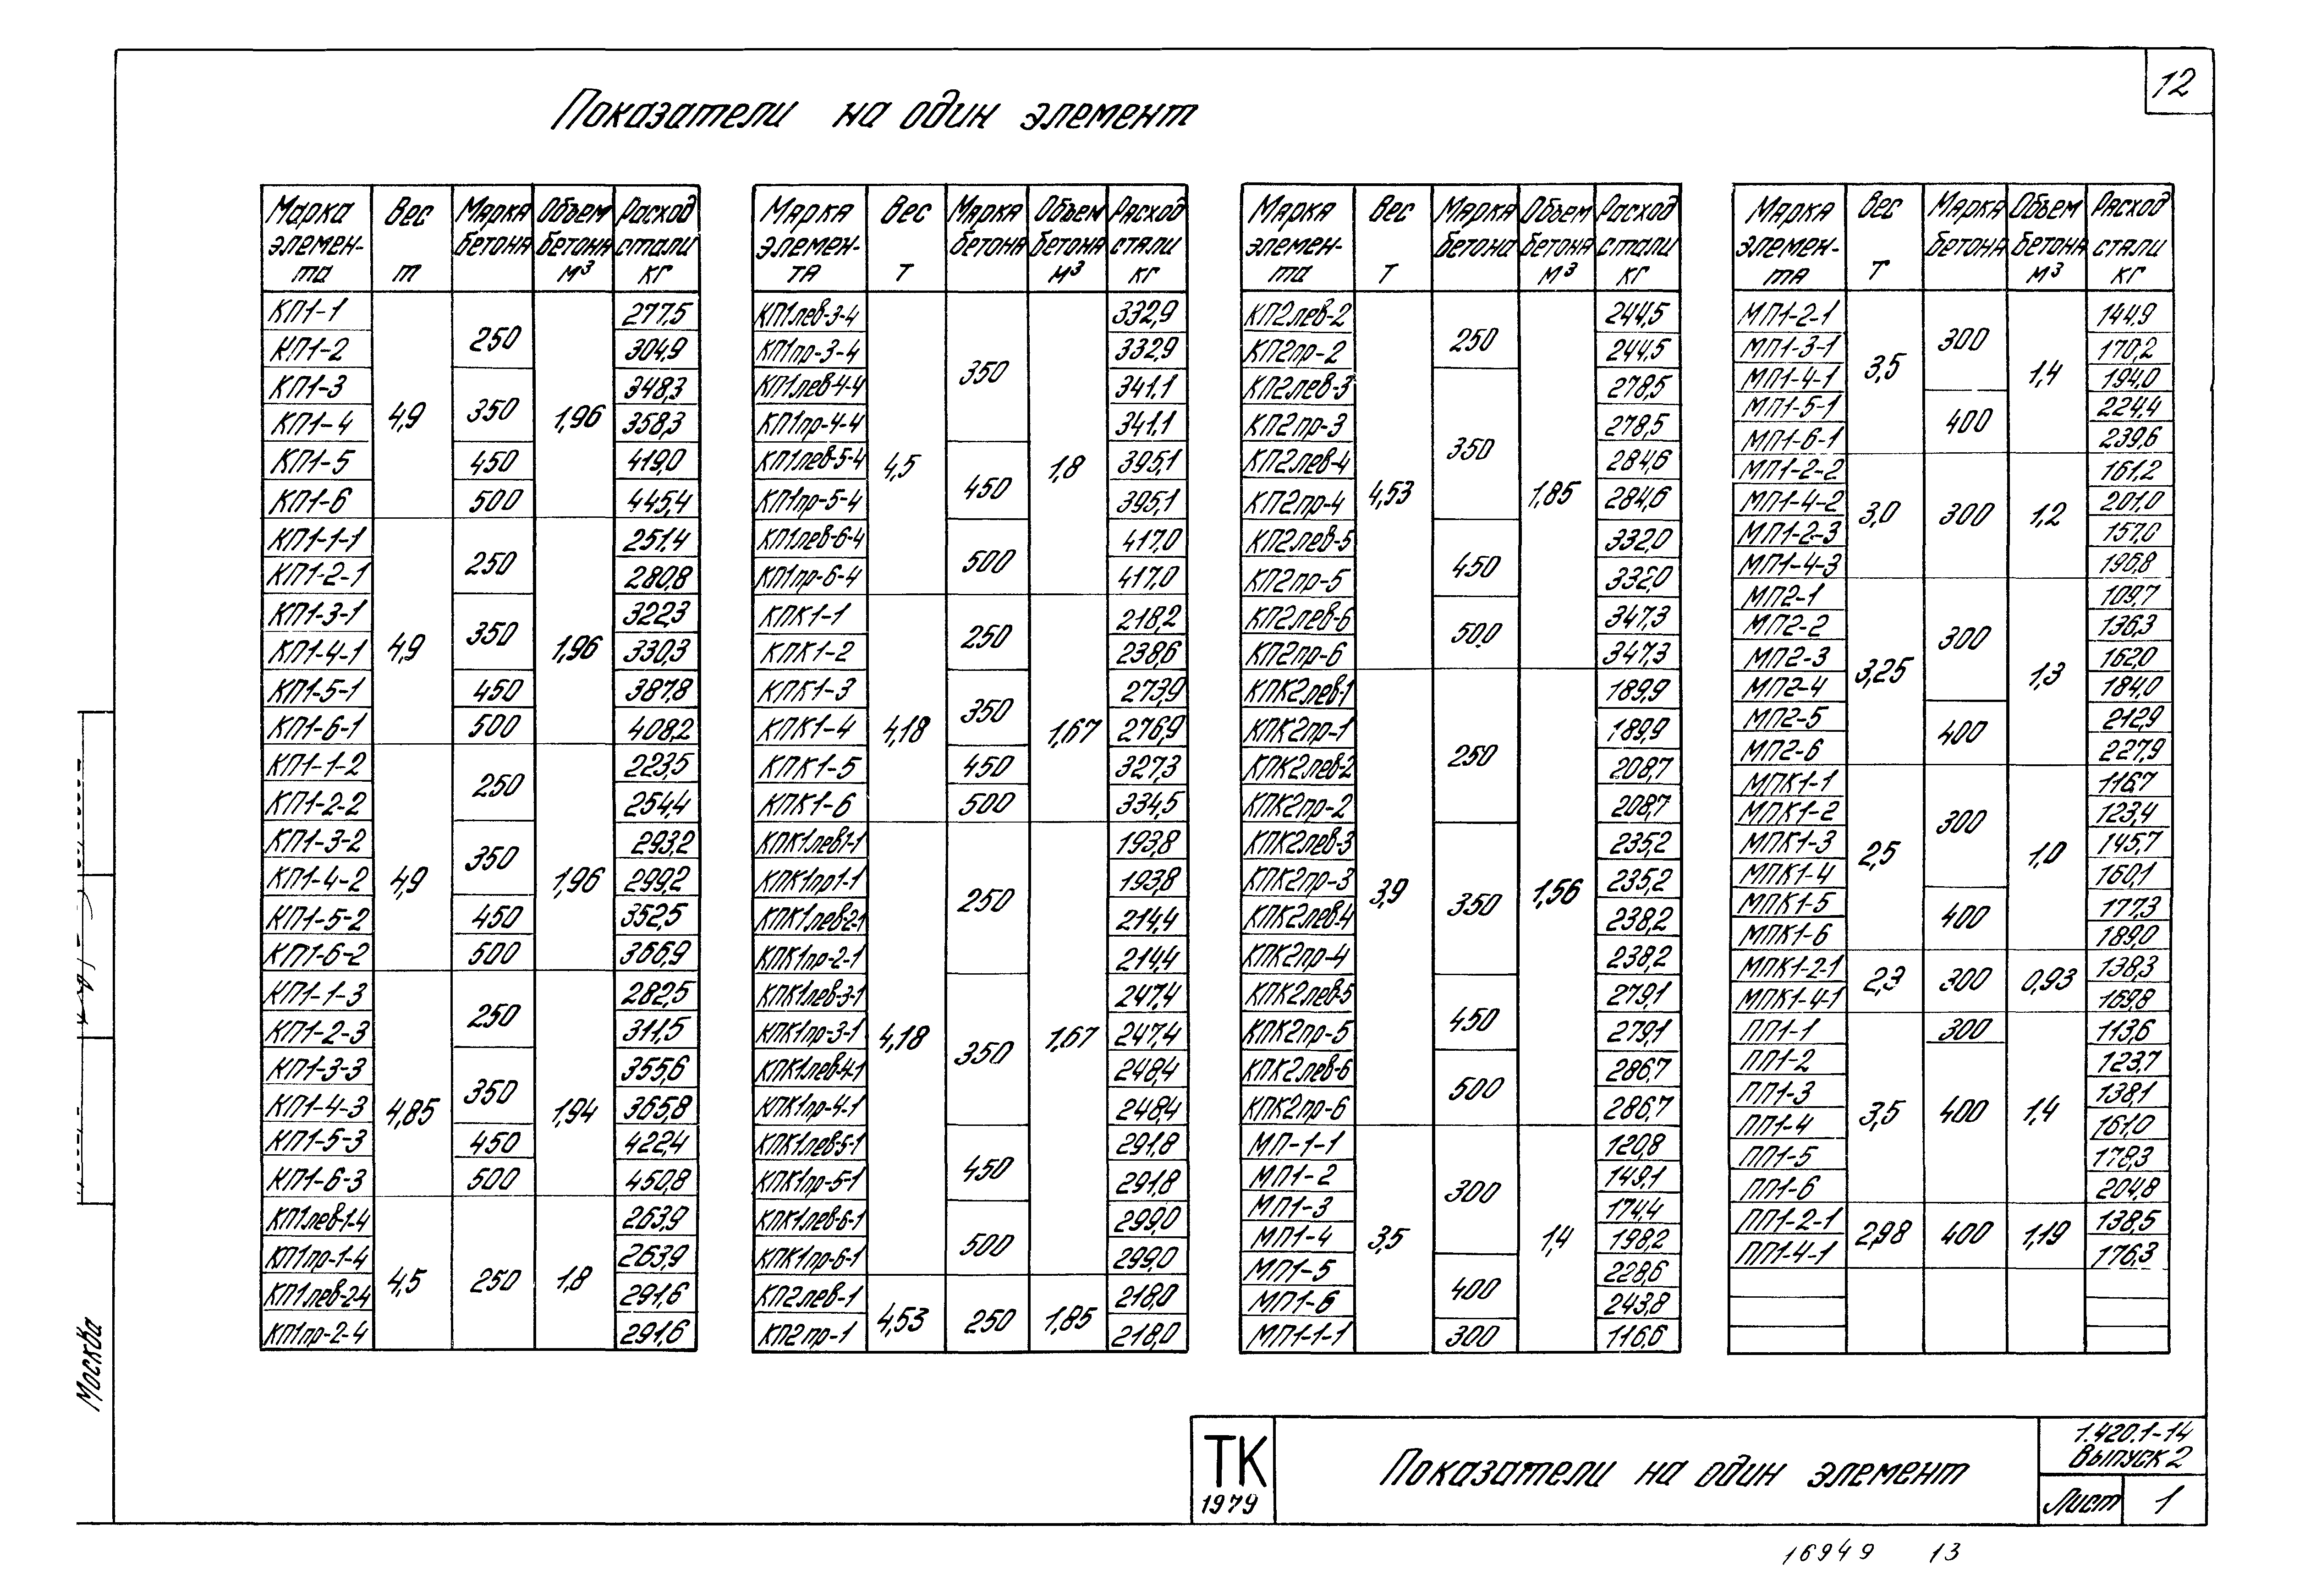 12
Показатели на один элемент
Марка элемен-та Вес т Марка бетона Объем бетона м³ Расход стали кг
КП1-1 4,9 250 1,96 277,5
КП1-2 304,9
КП1-3 350 348,3
КП1-4 358,3
КП1-5 450 419,0
КП1-6 500 445,4
КП1-1-1 4,9 250 1,96 251,4
КП1-2-1 280,8
КП1-3-1 350 322,3
КП1-4-1 330,3
КП1-5-1 450 387,8
КП1-6-1 500 408,2
КП1-1-2 4,9 250 1,96 223,5
КП1-2-2 254,4
КП1-3-2 350 293,2
КП1-4-2 299,2
КП1-5-2 450 352,5
КП1-6-2 500 366,9
КП1-1-3 4,85 250 1,94 282,5
КП1-2-3 311,5
КП1-3-3 350 355,6
КП1-4-3 365,8
КП1-5-3 450 422,4
КП1-6-3 500 450,8
КП1лев-1-4 4,5 250 1,8 263,9
КП1пр-1-4 263,9
КП1лев-2-4 291,6
КП1пр-2-4 291,6
Марка элемен-та Вес т Марка бетона Объем бетона м³ Расход стали кг
КП1лев-3-4 4,5 350 1,8 332,9
КП1пр-3-4 332,9
КП1лев-4-4 341,1
КП1пр-4-4 341,1
КП1лев-5-4 450 395,1
КП1пр-5-4 395,1
КП1лев-6-4 500 417,0
КП1пр-6-4 417,0
КПК1-1 4,18 250 1,67 218,2
КПК1-2 238,6
КПК1-3 350 273,9
КПК1-4 276,9
КПК1-5 450 327,3
КПК1-6 500 334,5
КПК1лев1-1 4,18 250 1,67 193,8
КПК1пр1-1 193,8
КПК1лев-2-1 214,4
КПК1пр-2-1 214,4
КПК1лев-3-1 350 247,4
КПК1пр-3-1 247,4
КПК1лев-4-1 248,4
КПК1пр-4-1 248,4
КПК1лев-5-1 450 291,8
КПК1пр-5-1 291,8
КПК1лев-6-1 500 299,0
КПК1пр-6-1 299,0
КП2лев-1 4,53 250 1,85 218,0
КП2пр-1 218,0
Марка элемен-та Вес т Марка бетона Объем бетона м³ Расход стали кг
КП2лев-2 4,53 250 1,85 244,5
КП2пр-2 244,5
КП2лев-3 350 278,5
КП2пр-3 278,5
КП2лев-4 284,6
КП2пр-4 284,6
КП2лев-5 450 332,0
КП2пр-5 332,0
КП2лев-6 500 347,3
КП2пр-6 347,3
КПК2лев-1 3,9 250 1,56 189,9
КПК2пр-1 189,9
КПК2лев-2 208,7
КПК2пр-2 208,7
КПК2лев-3 350 235,2
КПК2пр-3 235,2
КПК2лев-4 238,2
КПК2пр-4 238,2
КПК2лев-5 450 279,1
КПК2пр-5 279,1
КПК2лев-6 500 286,7
КПК2пр-6 286,7
МП-1-1 3,5 300 1,4 120,8
МП1-2 149,1
МП1-3 174,4
МП1-4 198,2
МП1-5 400 228,6
МП1-6 243,8
МП1-1-1 300 116,6
Марка элемен-та Вес т Марка бетона Объем бетона м³ Расход стали кг
МП1-2-1 3,5 300 1,4 144,9
МП1-3-1 170,2
МП1-4-1 194,0
МП1-5-1 400 224,4
МП1-6-1 239,6
МП1-2-2 3,0 300 1,2 161,2
МП1-4-2 201,0
МП1-2-3 157,0
МП1-4-3 196,8
МП2-1 3,25 300 1,3 109,7
МП2-2 136,3
МП2-3 162,0
МП2-4 184,0
МП2-5 400 212,9
МП2-6 227,9
МПК1-1 2,5 300 1,0 116,7
МПК1-2 123,4
МПК1-3 145,7
МПК1-4 160,1
МПК1-5 400 177,3
МПК1-6 189,0
МПК1-2-1 2,3 300 0,93 138,3
МПК1-4-1 169,8
ПП1-1 3,5 300 1,4 113,6
ПП1-2 400 123,7
ПП1-3 138,1
ПП1-4 161,0
ПП1-5 178,3
ПП1-6 204,8
ПП1-2-1 2,98 400 1,19 138,5
ПП1-4-1 176,3
Москва
ТК
1979
Показатели на один элемент
1.420.1-14
Выпуск 2
Лист 1
16949 13